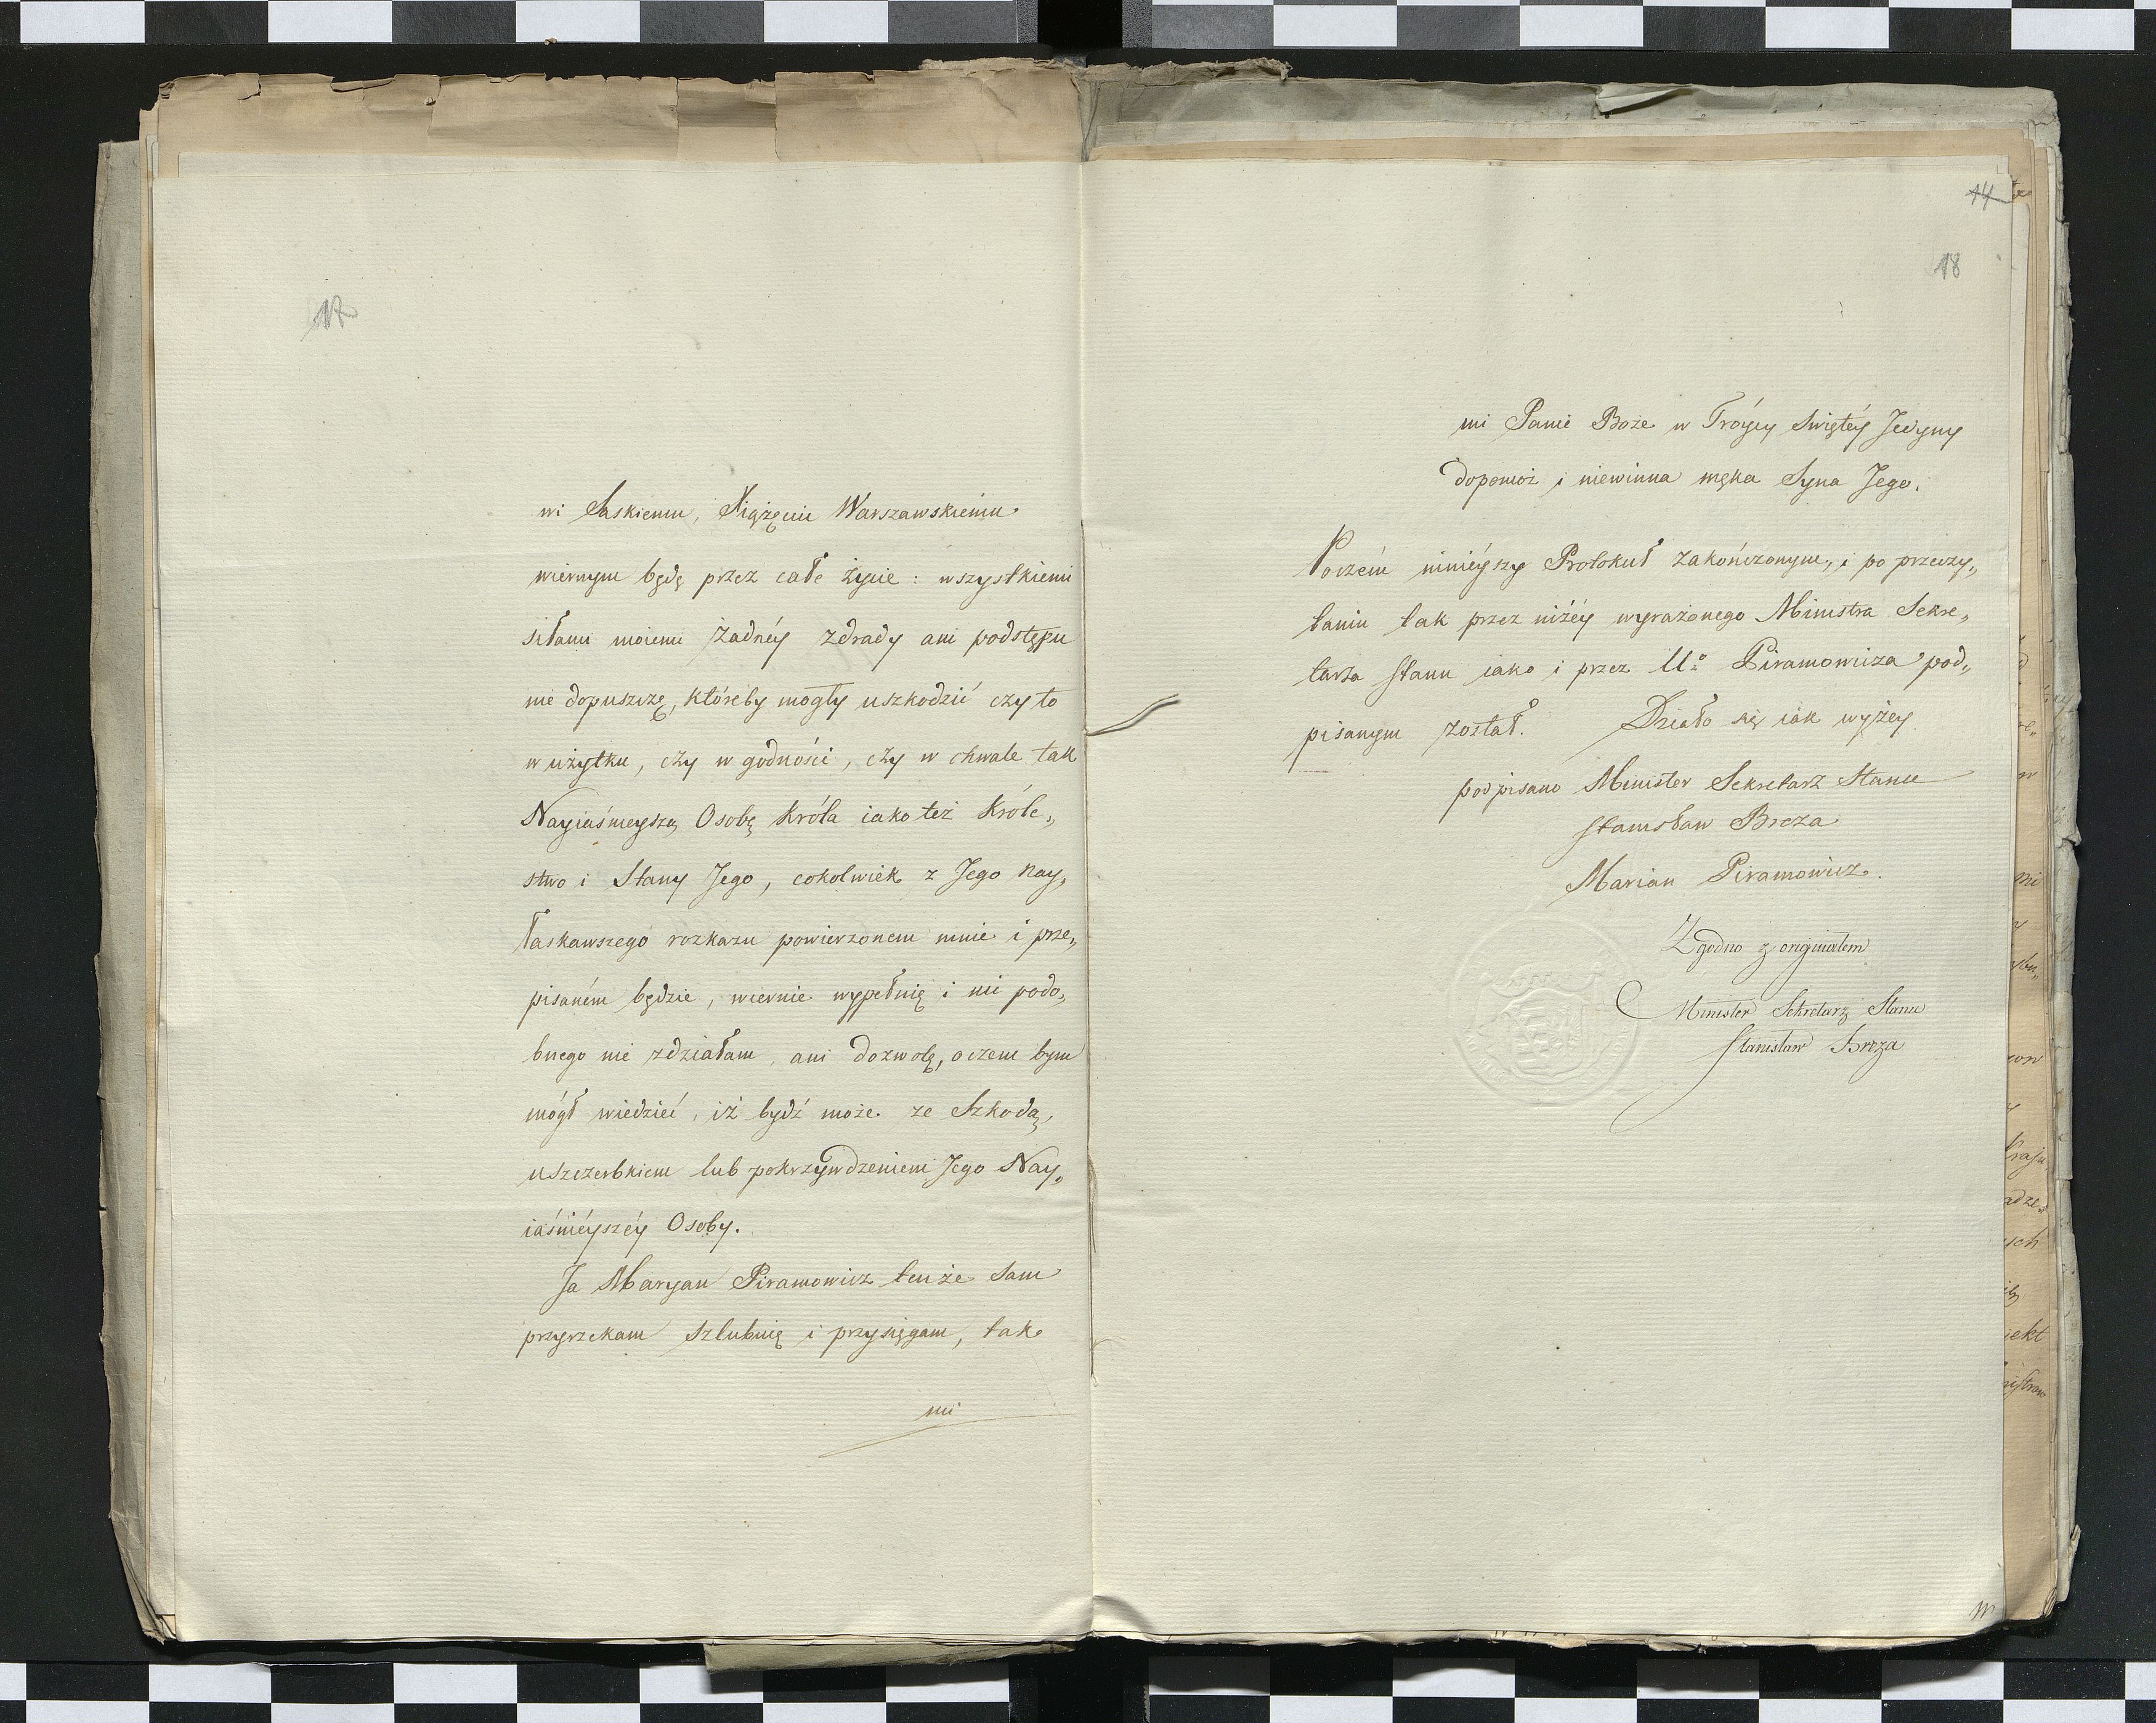 17
wi Saskiemu, Xiążęciu Warszawskiemu
wiernym będę przez całe życie: wszystkiemi
siłami moiemi żadnéy zdrady ani podstępu
nie dopuszczę, któreby mogły uszkodzić czy to
w użytku, czy w godności, czy w chwale tak
Nayiaśnieyszą Osobę Króla iako też Króle„
stwo i Stany Jego, cokolwiek z Jego Nay„
łaskawszego rozkazu powierzonem mnie i prze„
pisaném będzie, wiernie wypełnię i nic podo„
bnego nie zdziałam, ani dozwolę, oczem bym
mógł wiedzieć, iż bydź może ze Szkodą,
uszczerbkiem lub pokrzywdzeniem Jego Nay„
iaśnieyszéy Osoby.
Ja Maryan Piramowicz tenże sam
przyrzekam szlubuię i przysięgam, tak
mi
14
18
mi Panie Boże w Tróycy Swiętéy Jedyny
dopomóż i niewinna męka Syna Jego.
Poczém ninieyszy Protokuł zakończonym, i po przeczy„
taniu tak przez niżéy wyrażonego Ministra Sekre„
tarza Stanu iako i przez Uo Piramowicza pod„
pisanym został. Działo się iak wyżey
podpisano Minister Sekretarz Stanu
Stanisław Breza
Marian Piramowicz.
Zgodno z originałem
Minister Sekretarz Stanu
Stanisław Breza